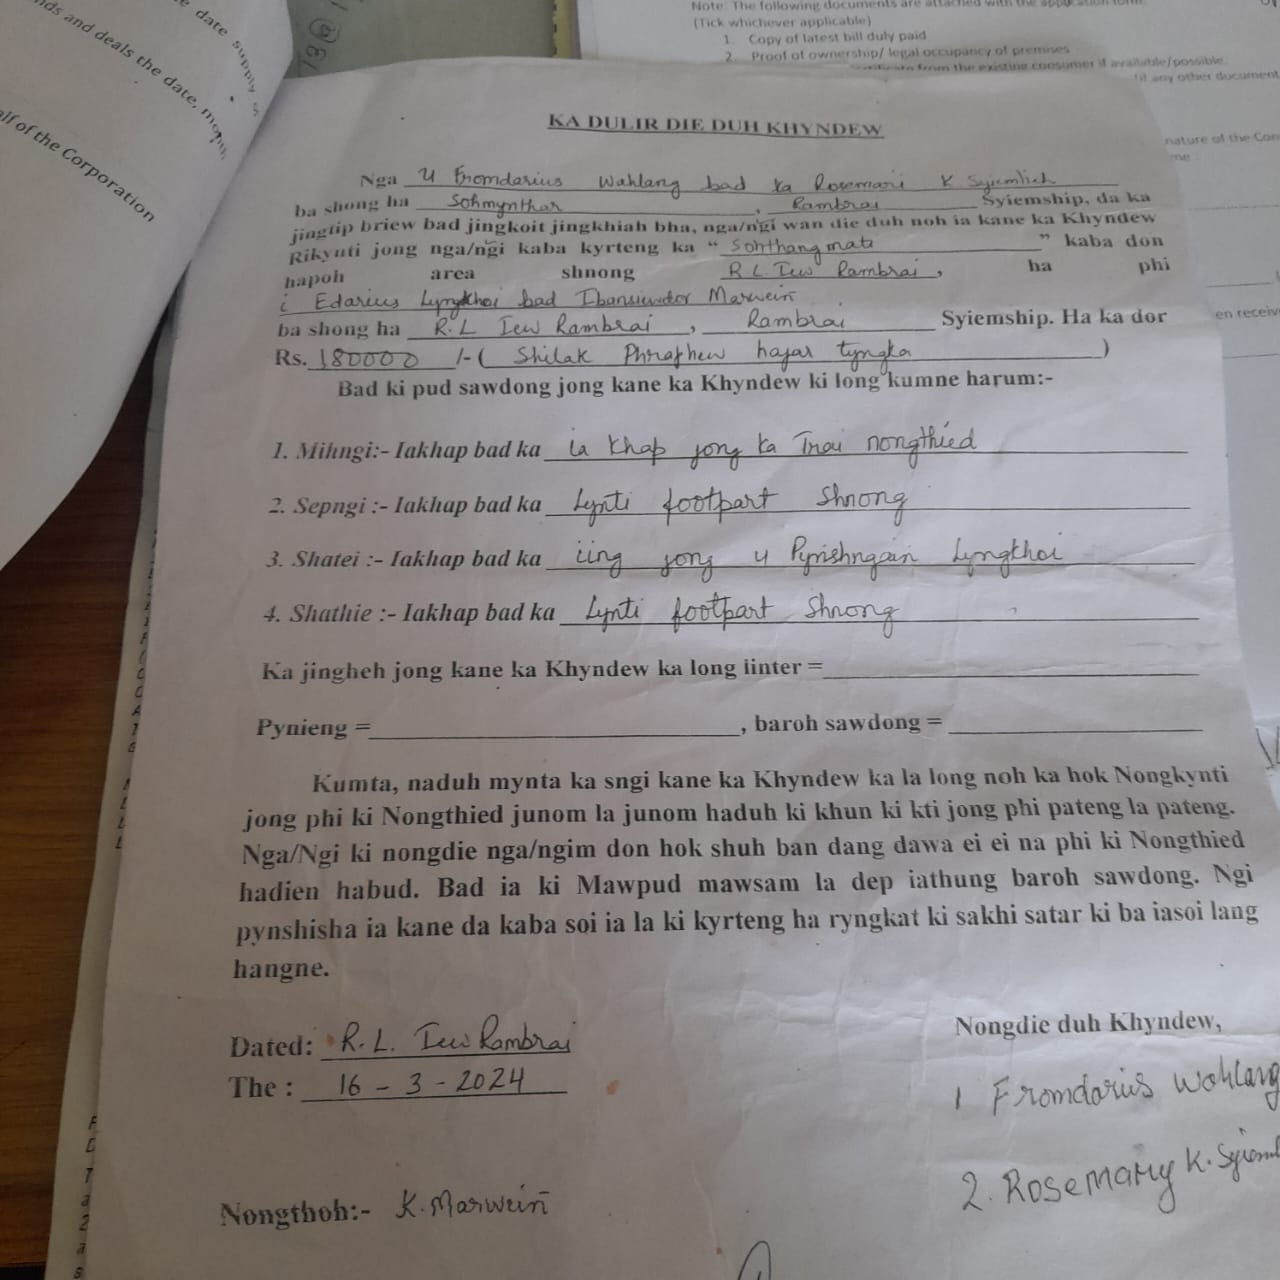 nds and deals the date, month
e date supply
alf of the Corporation
Note: The following documents are attached with the application form.
(Tick whichever applicable)
1. Copy of latest bill duly paid
2. Proof of ownership/ legal occupancy of premises
from the existing consumer if available/possible.
any other document
nature of the Con
en receiv
KA DULIR DIE DUH KHYNDEW
Nga U Fromdarius Wahlang bad ka Rosemari K Syiemlieh
ba shong ha Sohmynthar, Rambrai Syiemship, da ka
jingtip briew bad jingkoit jingkhiah bha, nga/ngi wan die duh noh ia kane ka Khyndew
Rikynti jong nga/ngi kaba kyrteng ka " Sohthangmata " kaba don
hapoh area shnong R L Iew Rambrai, ha phi
i Edarius Lyngkhoi bad Ibansiewdor Marwein
ba shong ha R.L Iew Rambrai, Rambrai Syiemship. Ha ka dor
Rs. 180000 /- ( Shilak Phraphew hajar tyngka )
Bad ki pud sawdong jong kane ka Khyndew ki long kumne harum:-
1. Mihngi:- Iakhap bad ka ia khap jong ka Trai nongthied
2. Sepngi :- Iakhap bad ka Lynti footpart Shnong
3. Shatei :- Iakhap bad ka iing jong u Pynshngain Lyngkhoi
4. Shathie :- Iakhap bad ka Lynti footpart Shnong
Ka jingheh jong kane ka Khyndew ka long iinter =
Pynieng = , baroh sawdong =
Kumta, naduh mynta ka sngi kane ka Khyndew ka la long noh ka hok Nongkynti
jong phi ki Nongthied junom la junom haduh ki khun ki kti jong phi pateng la pateng.
Nga/Ngi ki nongdie nga/ngim don hok shuh ban dang dawa ei ei na phi ki Nongthied
hadien habud. Bad ia ki Mawpud mawsam la dep iathung baroh sawdong. Ngi
pynshisha ia kane da kaba soi ia la ki kyrteng ha ryngkat ki sakhi satar ki ba iasoi lang
hangne.
Dated: R.L. Iew Rambrai
The : 16 - 3 - 2024
Nongdie duh Khyndew,
1 Fromdarius Wahlang
2. Rosemary K. Syieml
Nongthoh:- K. Marwein